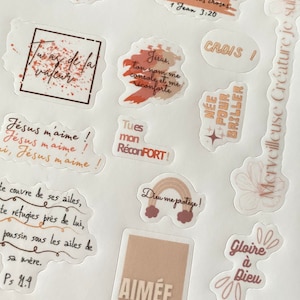 1 Jean 3:20
Tu as de la
valeur
Jésus,
CROIS !
NÉE
POUR
BRILLER
Merveilleuse Créature je suis
Jésus m'aime !
Jésus m'aime !
Jésus m'aime !
Tu es
mon
RéconFORT!
Dieu me protège !
te couvre de ses ailes,
te réfugies près de lui,
poussin sous les ailes de
sa mère.
Ps 91.4
AIMÉE
Gloire
à
Dieu